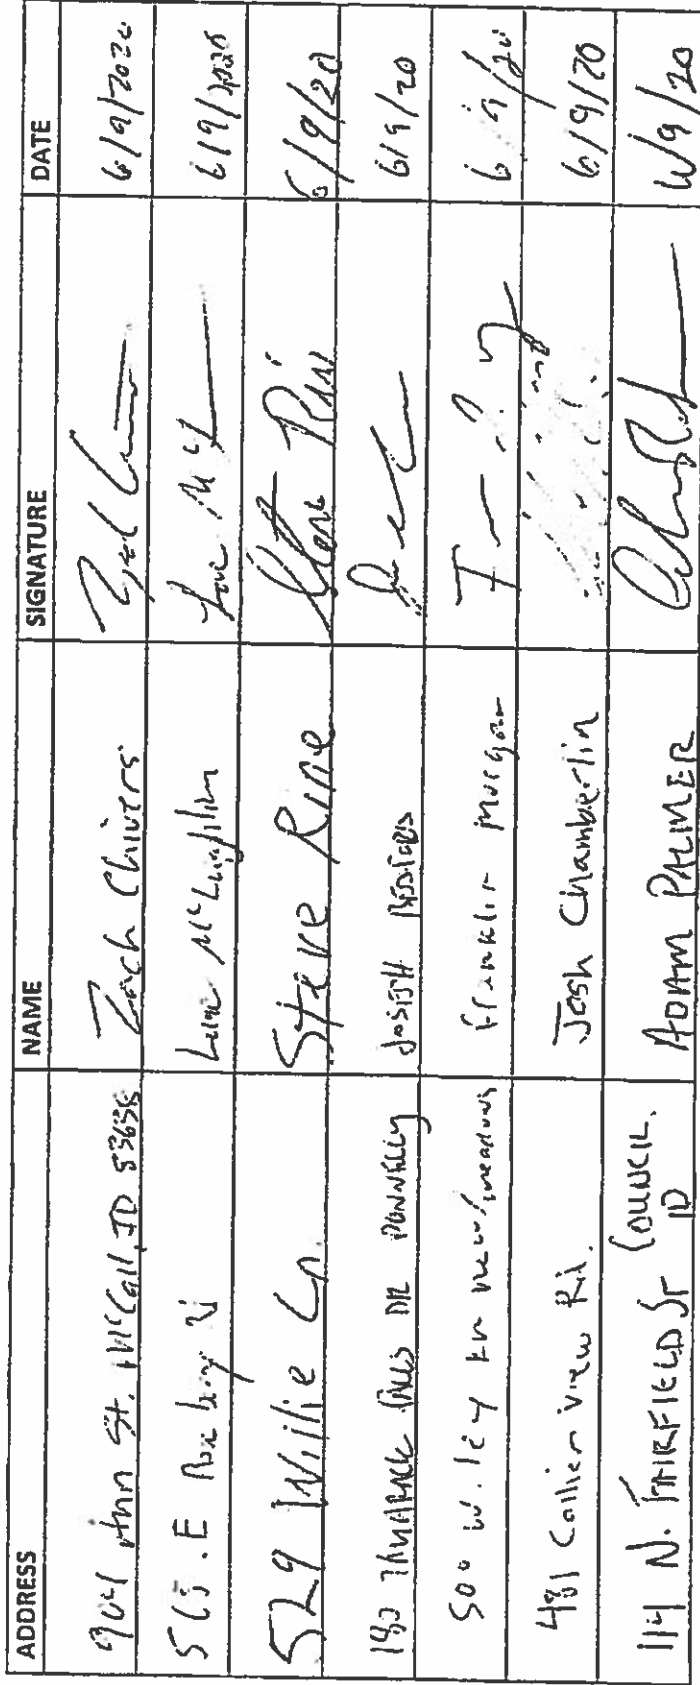 ADDRESS NAME SIGNATURE DATE
904 Ann St. McCall, ID 83638 Zach Chivers 6/9/2020
Luke McLaughlin 6/9/2020
529 Willie Ln Steve Rine 6/9/20
DR DONNELLY JOSEPH 6/9/20
500 W. ley Ln new meadows Franklin Morgan 6/9/20
481 Collier view Rd. Josh Chamberlin 6/9/20
114 N. FAIRFIELD ST COUNCIL, ID ADAM PALMER 6/9/20